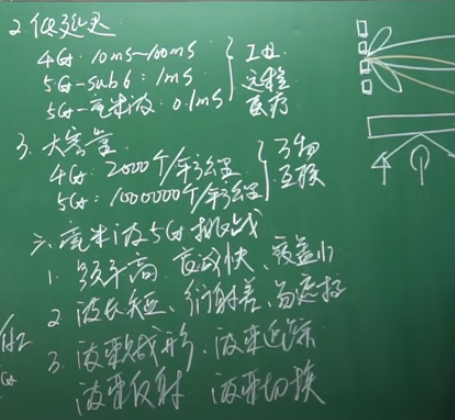 2. 低延迟
4G: 10ms~100ms
5G-sub6: 1ms
5G-毫米波: 0.1ms
工业
远程
医疗
3. 大容量
4G: 2000个/平方公里
5G: 1000000个/平方公里
万物
互联
六、毫米波5G挑战
1. 频率高、衰减快、覆盖小
2 波长短、衍射差、易遮挡
3. 波束成形、波束追踪
波束反射 波束切换